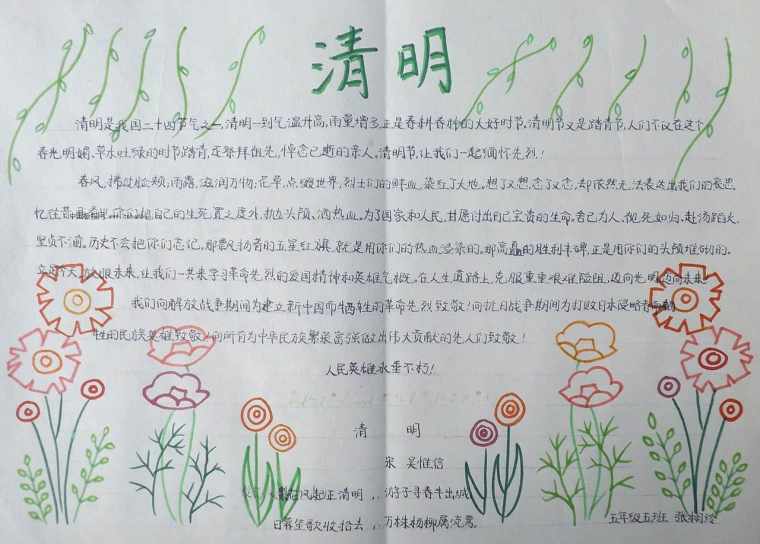 清明
清明是我国二十四节气之一,清明一到气温升高,雨量增多正是春耕春种的大好时节,清明节又是踏青节,人们不仅在这个
春光明媚、草木吐绿的时节踏青,还祭拜祖先,悼念已逝的亲人。清明节,让我们一起缅怀先烈!
春风,拂过脸颊;雨露,滋润万物;花草,点缀世界,烈士们的鲜血,染红了大地。想了又想,念了又念,却依然无法表达出我们的哀思。
忆往昔 你们把自己的生死置之度外,抛头颅、洒热血。为了国家和人民,甘愿付出自己宝贵的生命。舍己为人、视死如归、赴汤蹈火、
坚贞不渝。历史不会把你们忘记,那飘扬着的五星红旗,就是用你们的热血染染的。那高矗的胜利丰碑,正是用你们的头颅堆砌的。
放眼未来,让我们一起来学习革命先烈的爱国精神和英雄气概。在人生道路上,克服重重艰难险阻,迈向光明迈向未来
我们向解放战争期间为建立新中国而牺牲的革命先烈致敬!向抗日战争期间为打败日本侵略者而牺
牲的民族英雄致敬!向所有为中华民族繁荣富强做出伟大贡献的先人们致敬!
人民英雄永垂不朽!
清 明
宋 吴惟信
风起正清明,游子寻春半出城
日暮笙歌收拾去,万株杨柳属流莺。
五年级五班 张